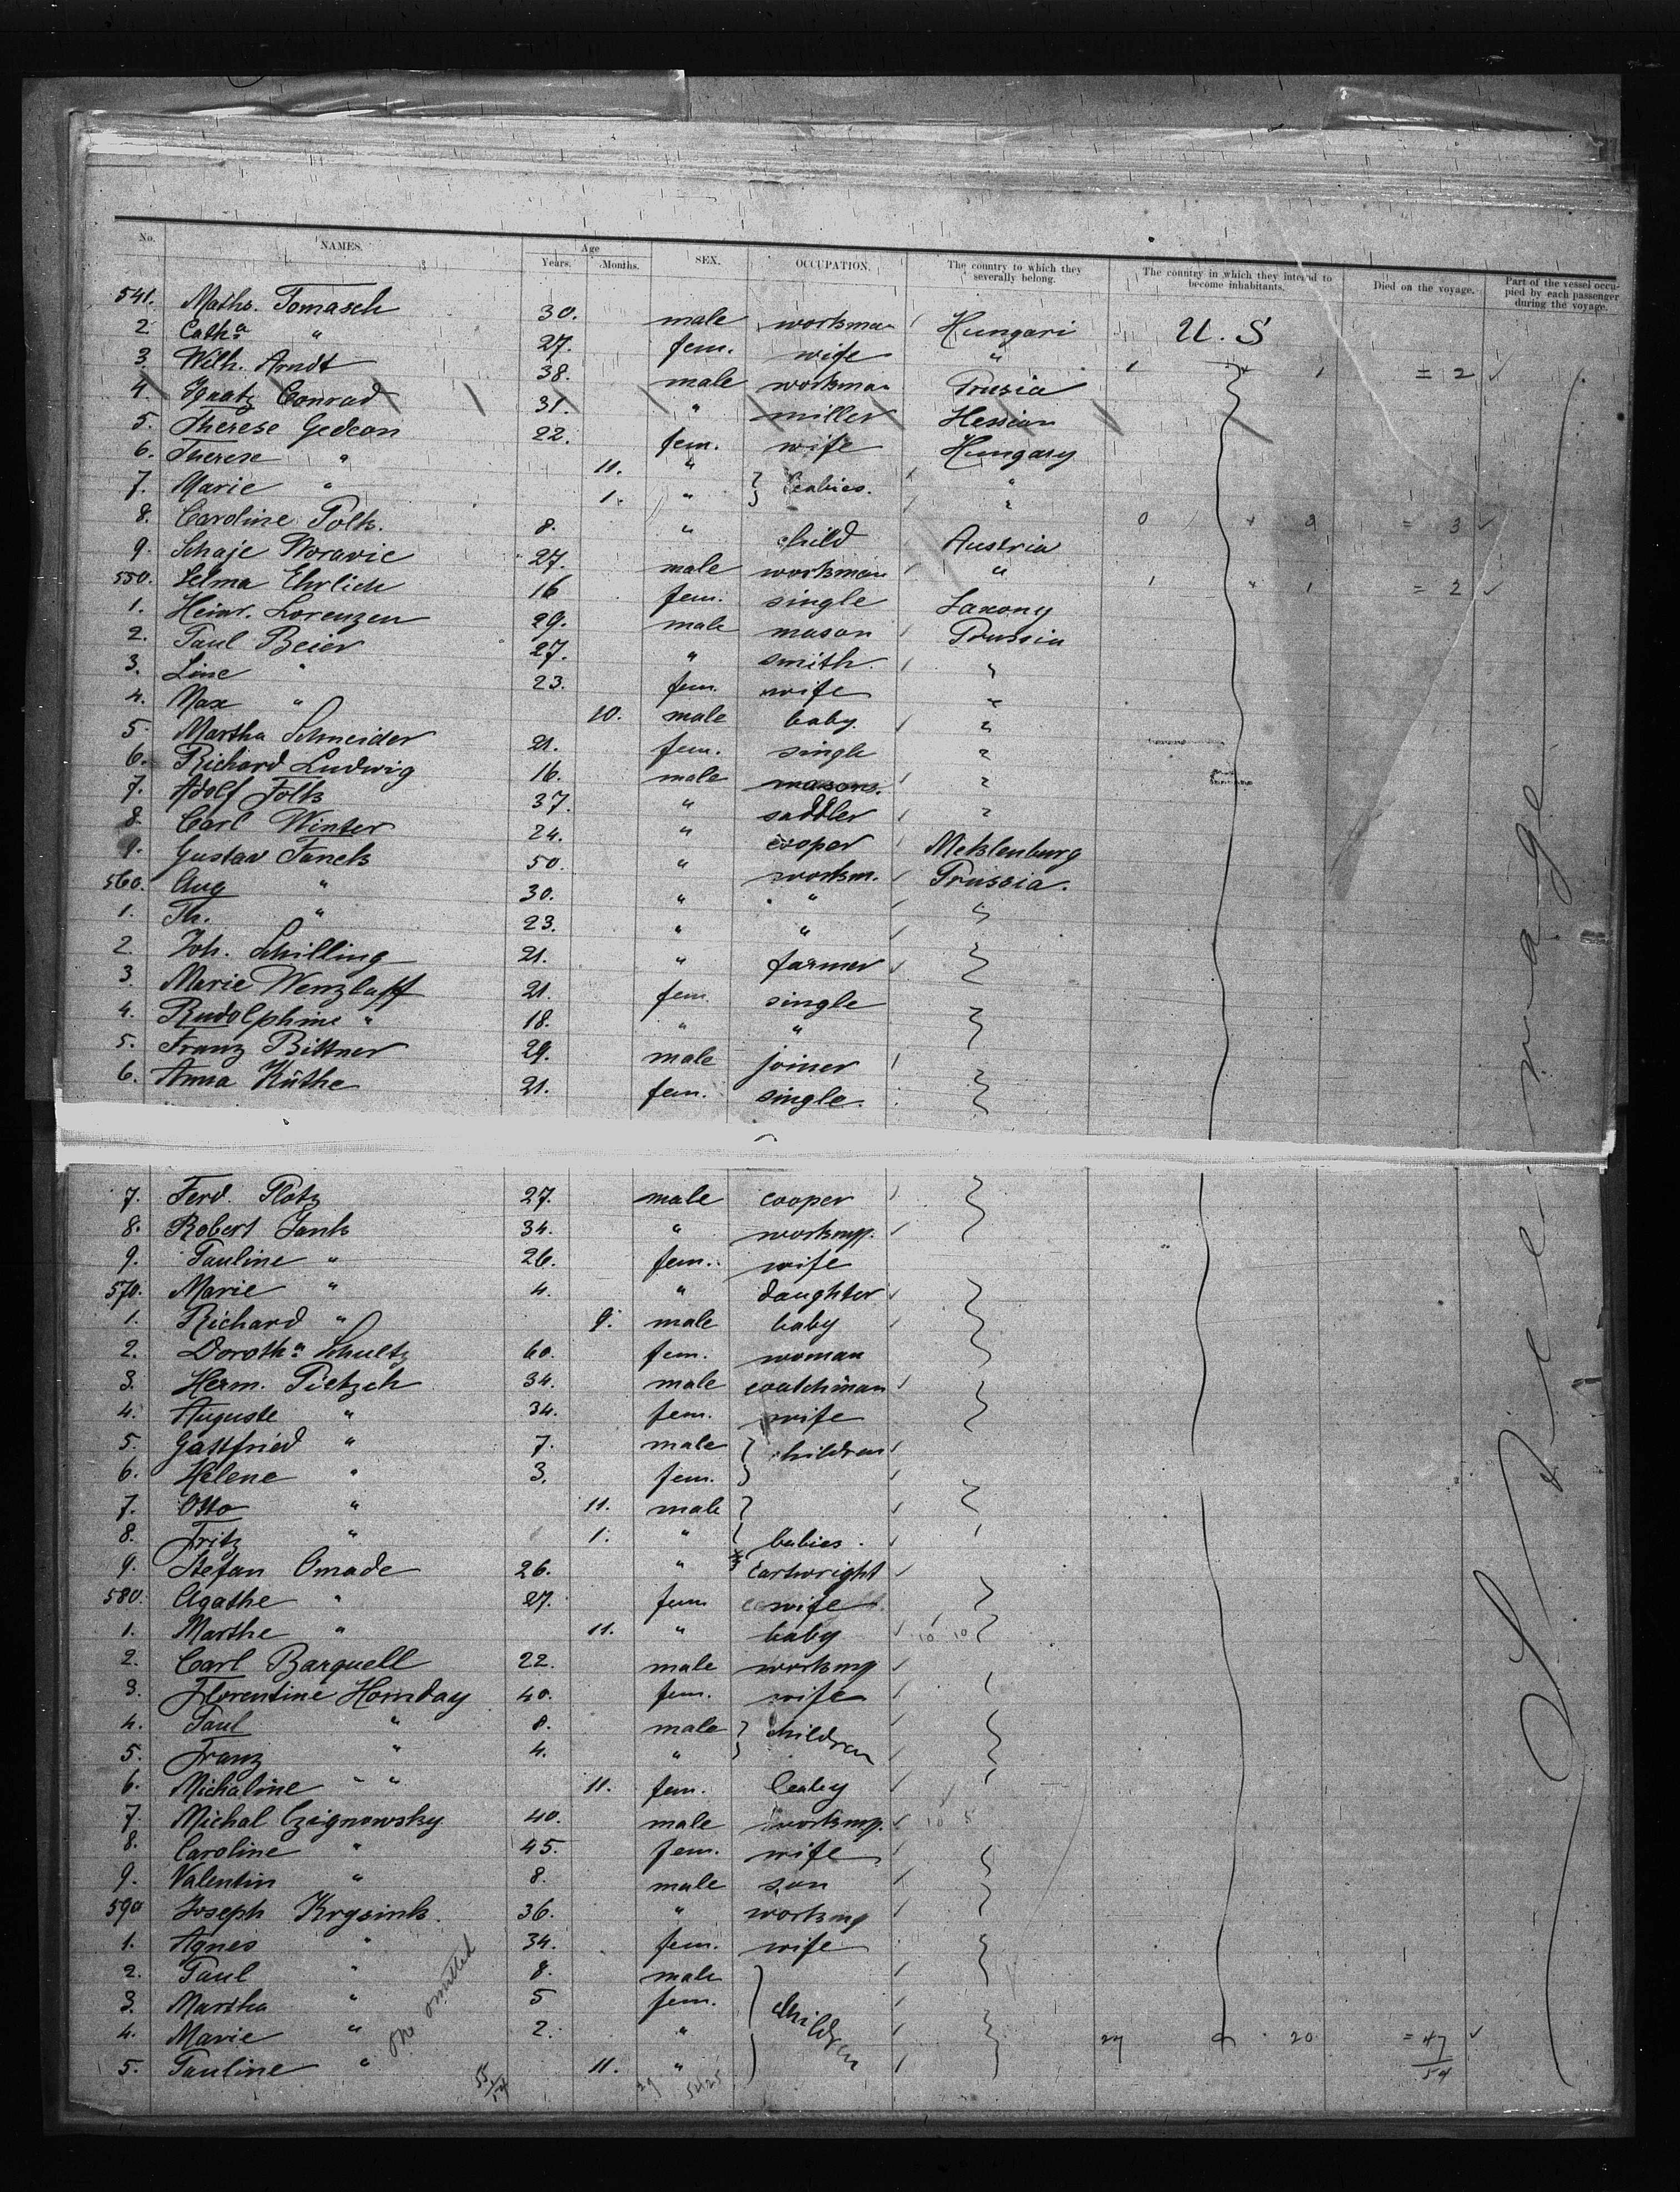 No. NAMES. Age Years. Months. SEX. OCCUPATION. The country to which they severally belong. The country in which they intend to become inhabitants. Died on the voyage. Part of the vessel occupied by each passenger during the voyage.
541. Maths. Tomasch 30. male workman Hungari U. S
2. Catha " 27. fem. wife "
3. Wilh. Arndt 38. male workman Prusia 1 + 1 = 2
4. Ignatz Conrad 31. " miller Hessian
5. Therese Gedeon 22. fem. wife Hungary
6. Therese " 11. " } babies. "
7. Marie " 1. " "
8. Caroline Polk. 8. " child Austria 0 + 3 = 3
9. Schaje 27. male workman " 1 " 1 = 2
550. Selma Ehrlich 16 fem. single Saxony
1. Heinr. Lorenzen 29. male mason Prussia
2. Paul Beier 27. " smith "
3. Line " 23. fem. wife "
4. Max " 10. male baby "
5. Martha Schneider 21. fem. single "
6. Richard Ludwig 16. male masons. "
7. Adolf Folk 37. " saddler "
8. Carl Winter 24. " cooper Meklenburg
9. Gustav Fanck 50. " workm. Prussia.
560. Aug " 30. " "
1. Th. " 23. " "
2. Joh. Schilling 21. " farmer
3. Marie Wenzlaff 21. fem. single
4. Rudolphine " 18. " "
5. Franz Bittner 29. male joiner
6. Anna Küthe 21. fem. single.
7. Ferd. Plotz 27. male cooper
8. Robert Jank 34. " workmp.
9. Pauline " 26. fem. wife
570. Marie " 4. " daughter
1. Richard " 9. male baby
2. Dorotha Schultz 60. fem. woman
3. Herm. Pietzch 34. male coatchman
4. Auguste " 34. fem. wife
5. Gottfried " 7. male } children
6. Helene " 3. fem.
7. Otto " 11. male }
8. Fritz " 1. " babies.
9. Stefan Omade 26. " cartwright
580. Agathe " 27. fem wife
1. Marthe " 11. " baby 10 10
2. Carl Barquell 22. male workmp
3. Florentine Hornday 40. fem. wife
4. Paul " 8. male } children
5. Franz " 4. "
6. Michaline " " 11. fem. baby
7. Michal Czignowsky 40. male workmp. 10 8
8. Caroline " 45. fem. wife
9. Valentin " 8. male son
590 Joseph Krysink. 36. " workmp
1. Agnes " 34. fem. wife
2. Paul " 8. male } children
3. Martha " 5 fem.
4. Marie " 2. " 27 + 20 = 47
5. Pauline " 11. " 54
One omitted
55/54
29 54 25